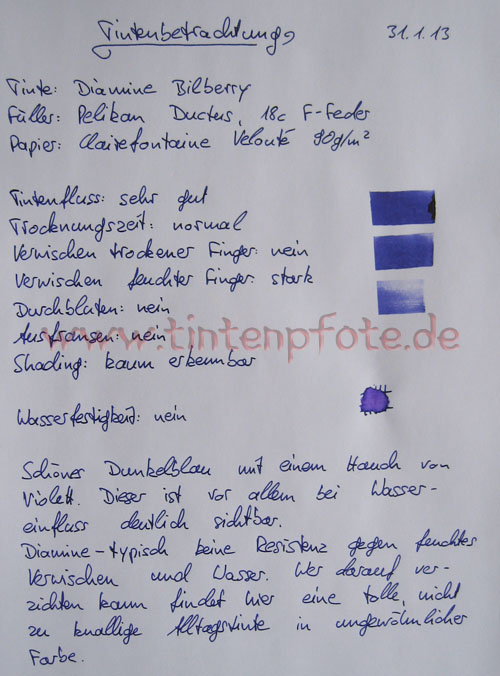 Tintenbetrachtung 31.1.13
Tinte: Diamine Bilberry
Füller: Pelikan Ductus, 18c F-Feder
Papier: Clairefontaine Velouté 90g/m²
Tintenfluss: sehr gut
Trocknungszeit: normal
Verwischen trockener Finger: nein
Verwischen feuchter Finger: stark
Durchbluten: nein
Ausfransen: nein
www.tintenpfote.de
Shading: kaum erkennbar
Wasserfestigkeit: nein
Schönes Dunkelblau mit einem Hauch von
Violett. Dieser ist vor allem bei Wasser-
einfluss deutlich sichtbar.
Diamine-typisch keine Resistenz gegen feuchtes
Verwischen und Wasser. Wer darauf ver-
zichten kann findet hier eine tolle, nicht
zu knallige Alltagstinte in ungewöhnlicher
Farbe.